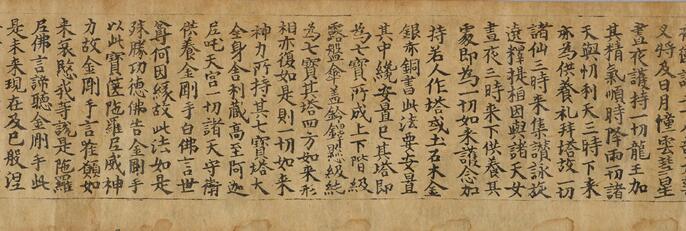 又將及日月幢雲彗星
晝夜護持一切龍王加
其精氣順時降雨一切諸
天與忉利天三時下來
亦為供養礼拜塔故一切
諸仙三時来集讃詠旋
遶釋提桓因與諸天女
晝夜三時来下供養其
處即為一切如来護念加
持若人作塔或土石木金
銀赤銅書此法要安置
其中纔安置已其塔即
為七寶所成上下階級
露盤傘盖鈴鐸懸級純
為七寶其塔四方如来形
相亦復如是則一切如来
神力所持其七寶塔大
全身舎利藏高至阿迦
尼吒天宮一切諸天守衛
供養金剛手白佛言世
尊何因緣故此法如是
殊勝功德佛告金剛手
以此寶篋陁羅尼威神
力故金剛手言唯願如
来哀愍我等說是陁羅
尼佛言諦聽金剛手此
是未来現在及已般涅